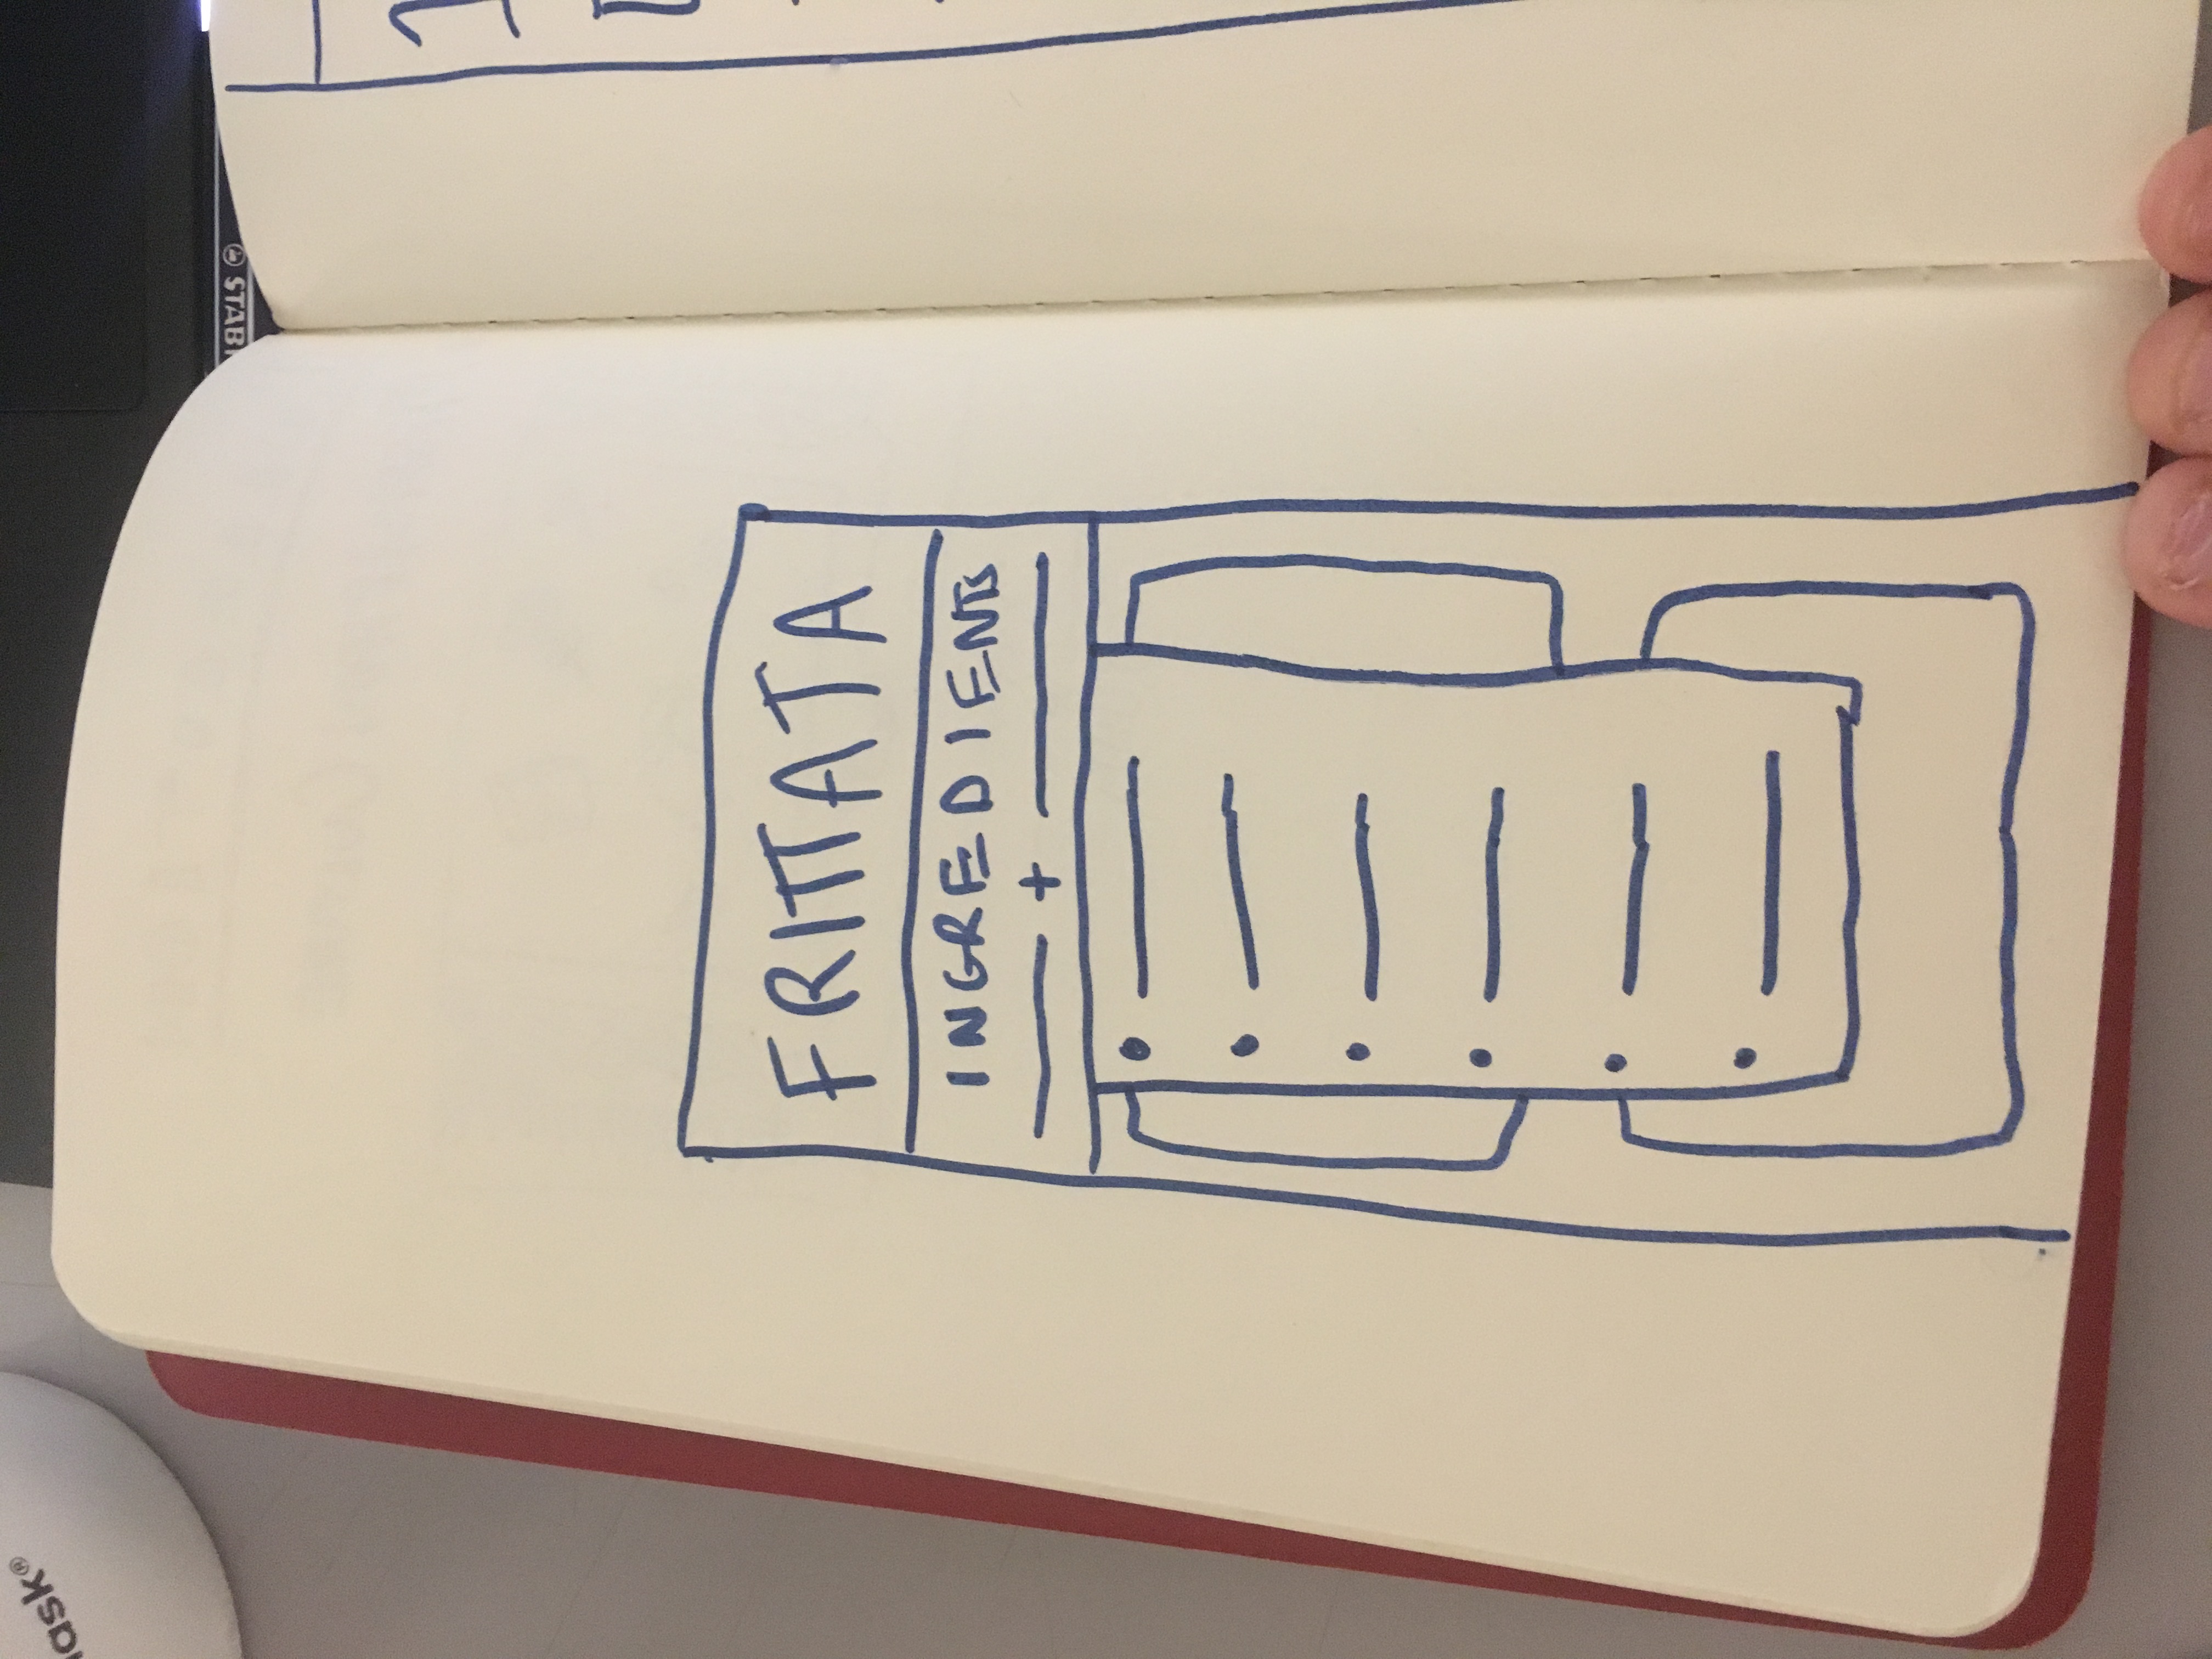 ask®
STAB
FRITTATA
INGREDIENTS
+
1